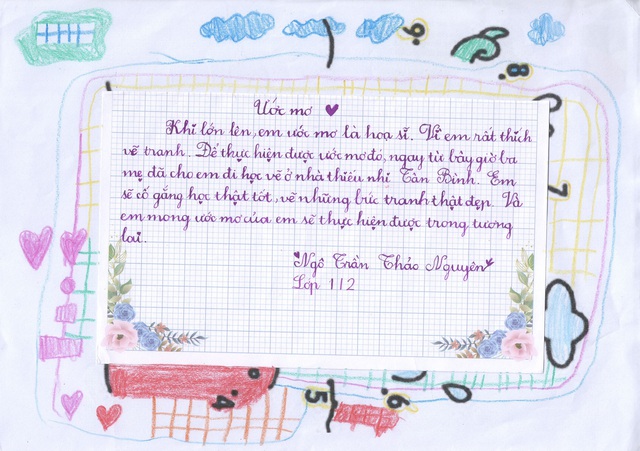 Ước mơ
Khi lớn lên, em ước mơ là hoạ sĩ. Vì em rất thích
vẽ tranh. Để thực hiện được ước mơ đó, ngay từ bây giờ ba
mẹ đã cho em đi học vẽ ở nhà thiếu nhi Tân Bình. Em
sẽ cố gắng học thật tốt, vẽ những bức tranh thật đẹp. Và
em mong ước mơ của em sẽ thực hiện được trong tương
lai.
Ngô Trần Thảo Nguyên
Lớp 1/2
9.
8.
7
6.
5
4.